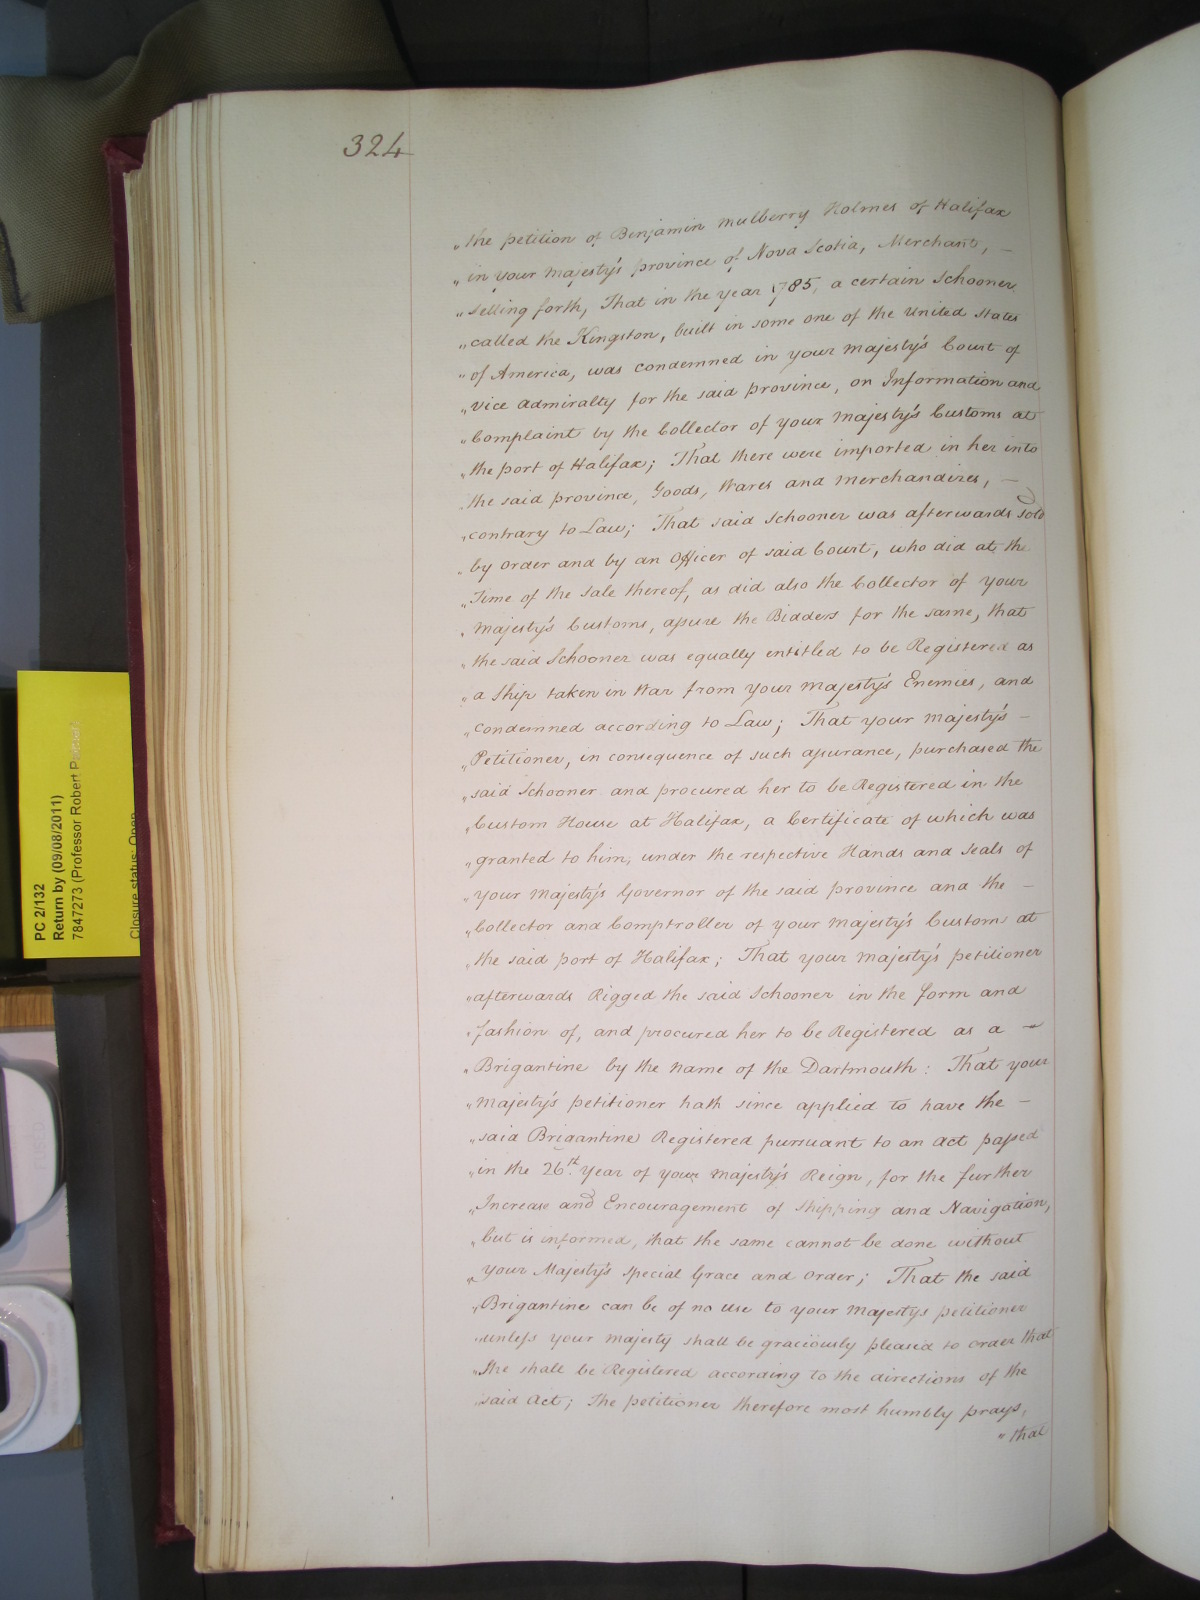 324
„ the petition of Benjamin Mulberry Holmes of Halifax
„ in your Majesty's province of Nova Scotia, Merchant, –
„ setting forth, That in the year 1785, a certain Schooner
„ called the Kingston, built in some one of the United States
„ of America, was condemned in your Majesty's Court of
„ Vice Admiralty for the said province, on Information and
„ Complaint by the Collector of your Majesty's Customs at
„ the port of Halifax; That there were imported in her into
„ the said province, Goods, Wares and Merchandizes, –
„ contrary to Law; That said Schooner was afterwards sold
„ by order and by an Officer of said Court, who did at the
„ Time of the Sale thereof, as did also the Collector of your
„ Majesty's Customs, assure the Bidders for the same, that
„ the said Schooner was equally entitled to be Registered as
„ a Ship taken in War from your Majesty's Enemies, and
„ condemned according to Law; That your Majesty's –
„ Petitioner, in consequence of such assurance, purchased the
„ said Schooner and procured her to be Registered in the
„ Custom House at Halifax, a Certificate of which was
„ granted to him, under the respective Hands and Seals of
„ your Majesty's Governor of the said province and the –
„ Collector and Comptroller of your Majesty's Customs at
„ the said port of Halifax; That your Majesty's petitioner
„ afterwards Rigged the said Schooner in the form and
„ fashion of, and procured her to be Registered as a –
„ Brigantine by the name of the Dartmouth: That your
„ Majesty's petitioner hath since applied to have the –
„ said Brigantine Registered pursuant to an Act passed
„ in the 26th. year of your Majesty's Reign, for the further
„ Increase and Encouragement of Shipping and Navigation,
„ but is informed, that the same cannot be done without
„ your Majesty's Special Grace and Order; That the said
„ Brigantine can be of no use to your Majestys petitioner
„ unless your Majesty shall be graciously pleased to order that
„ she shall be Registered according to the directions of the
„ said Act; The petitioner therefore most humbly prays,
„ that
PC 2/132
Return by (09/08/2011)
7847273 (Professor Robert
Closure status: Open